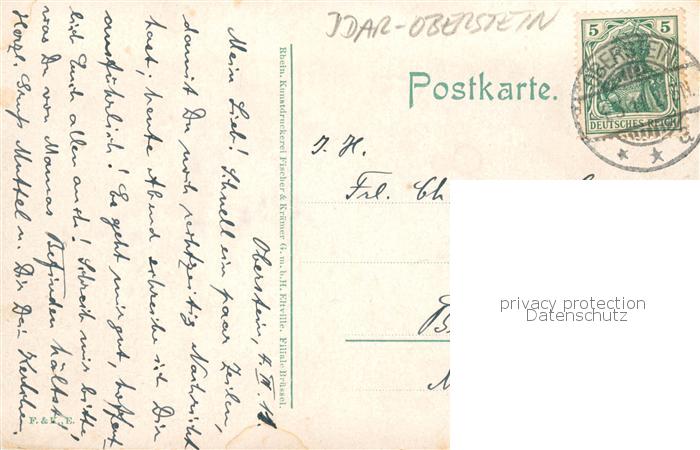 IDAR-OBERSTEIN
Postkarte.
5 5
DEUTSCHES REICH
OBERSTEIN
J. H.
Frl. Ch
privacy protection
Datenschutz
Rhein. Kunstdruckerei Fischer & Krämer G. m. b. H. Eltville. Filiale Brüssel.
Oberstein, 4.
Mein Lieb! Schnell ein paar Zeilen,
damit Du noch rechtzeitig Nachricht
hast; heute Abend schreibe ich Dir
ausführlich! Es geht mir gut, hoffent-
lich Euch allen auch! Schreib mir bitte,
was Du von Mamas Befinden hältst,
Herzl. Gruß Muttel u. Dir Dein
F. & K., E.